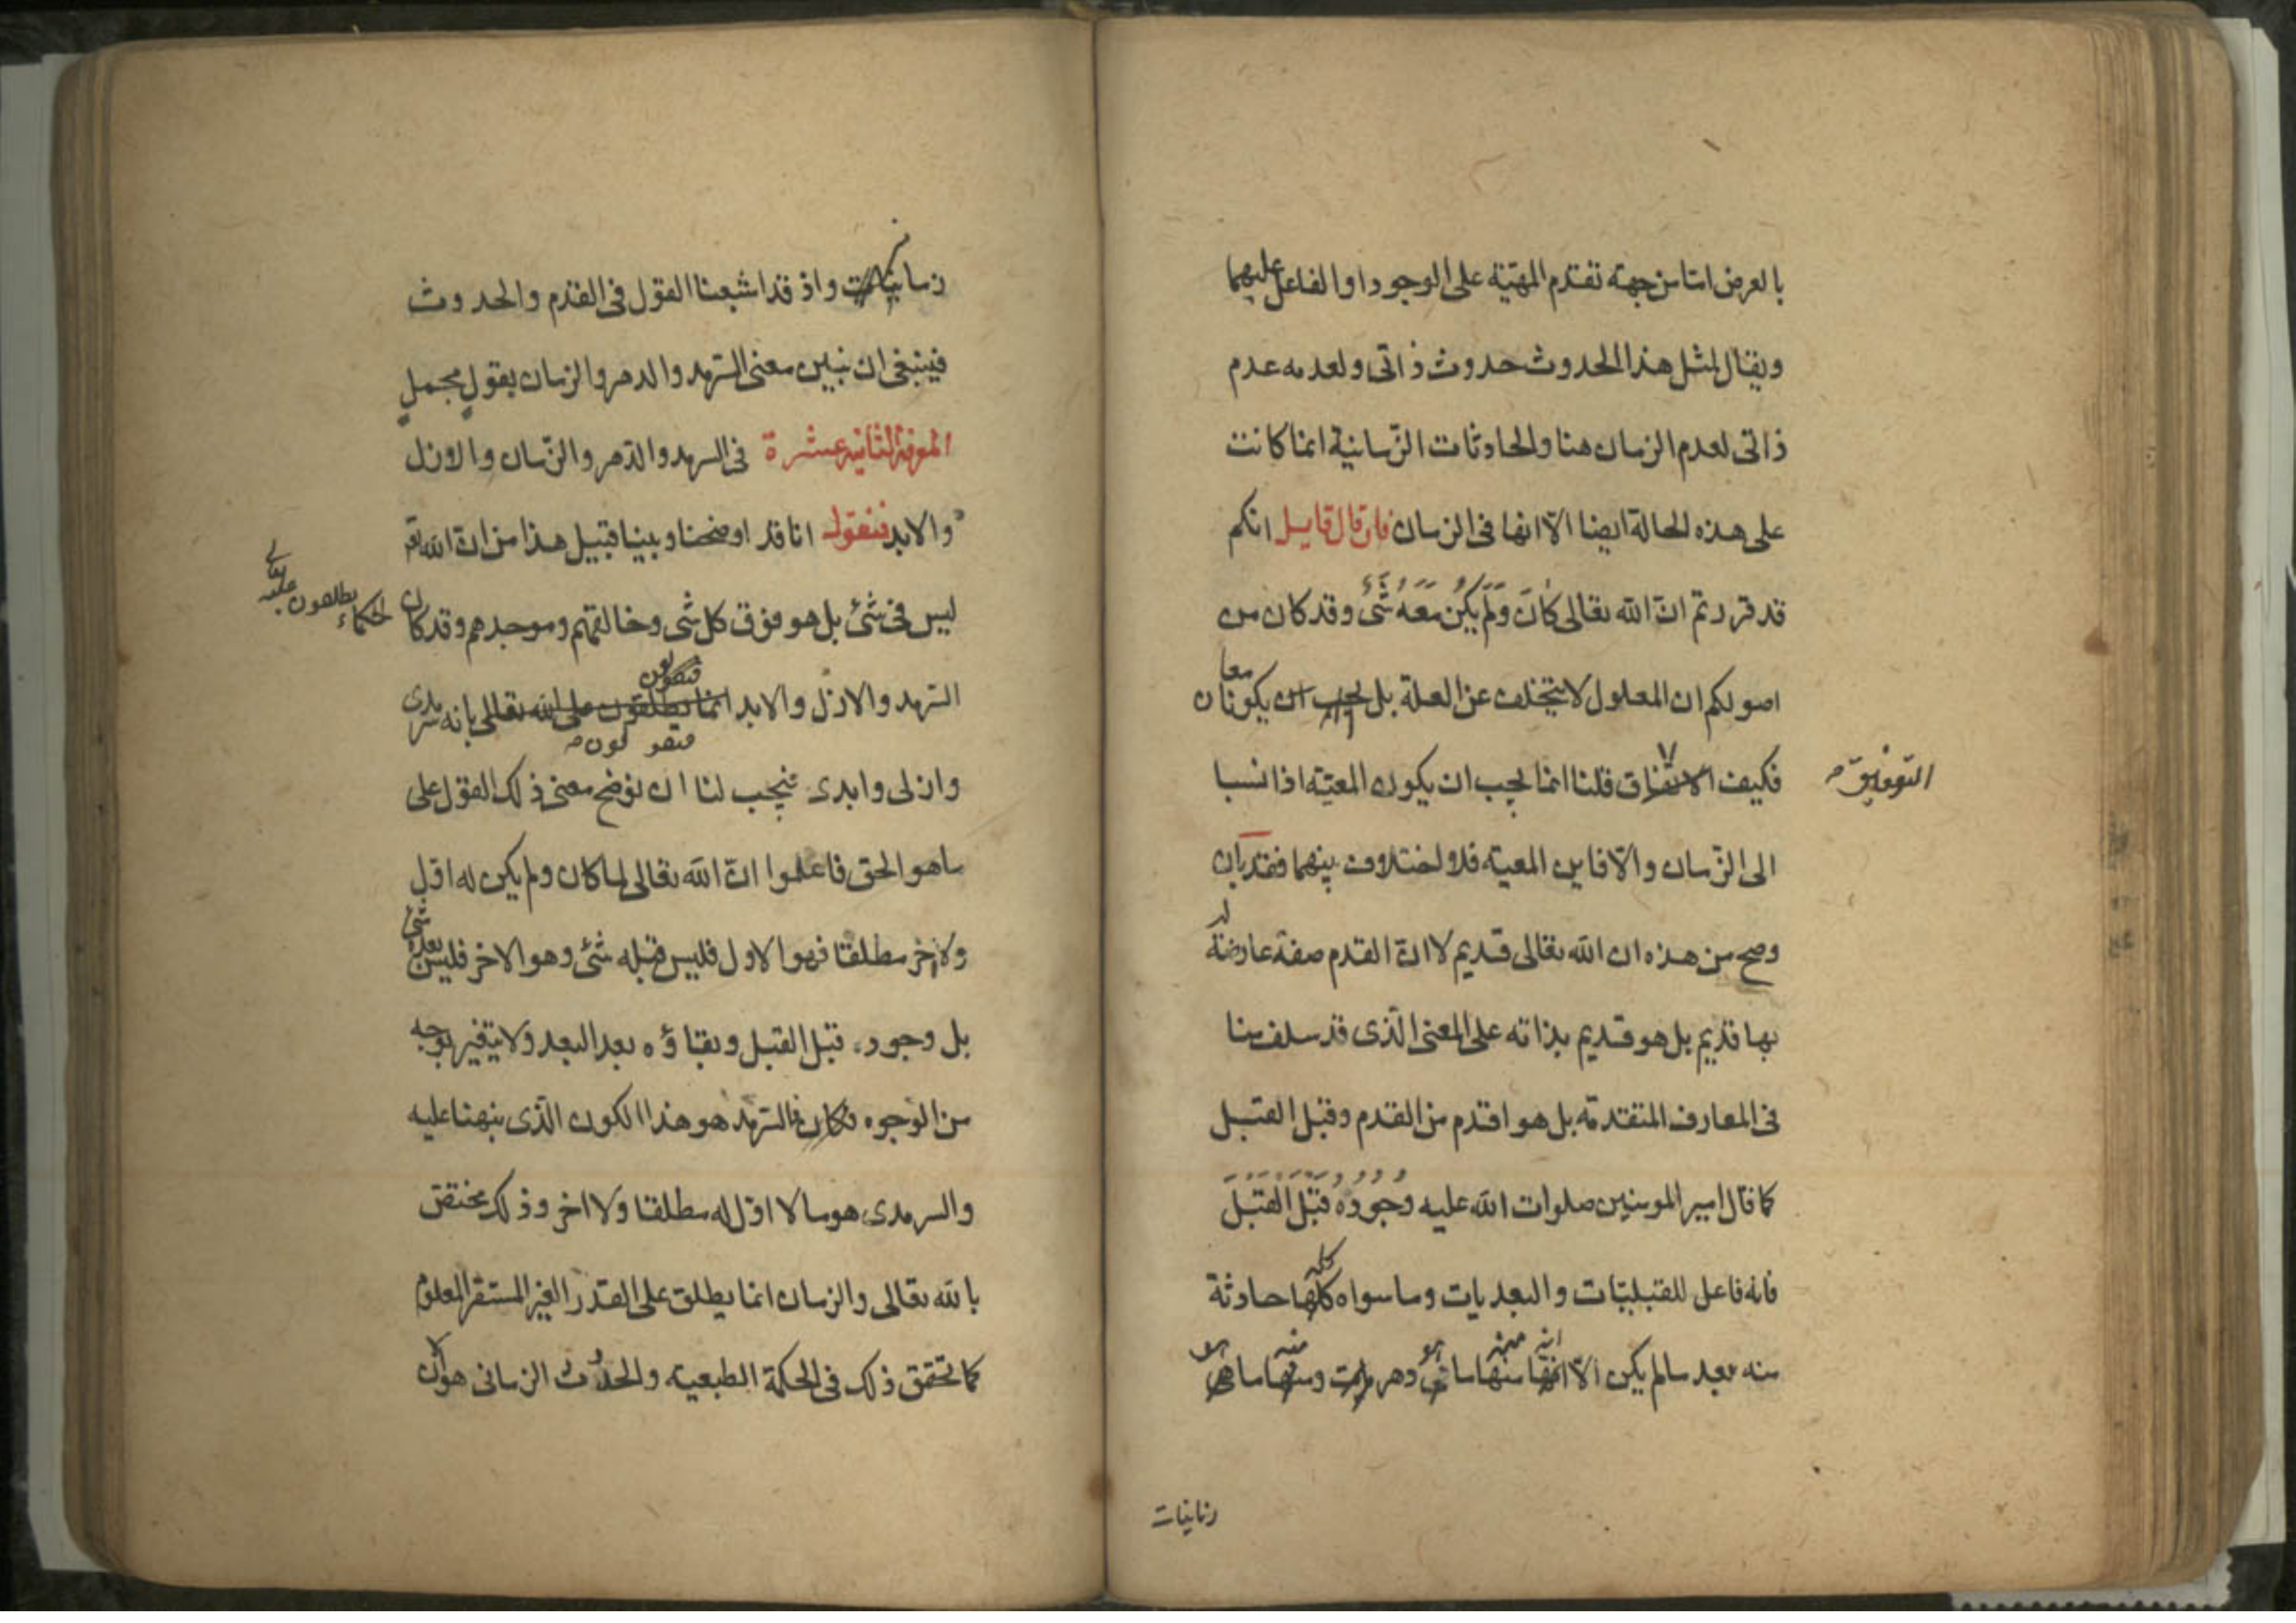 بالعرض اما من جهة تقدم المهيّة على الوجود او الفاعل عليهما
ويقال لمثل هذا الحدوث حدوث ذاتى ولعدمه عدم
ذاتى لعدم الزمان هنا والحادثات الزّمانية انما كانت
على هذه الحالة ايضا الّا انها فى الزمان فان قال قايل انكم
قد قررتم انّ الله تعالى كَانَ وَلَمْ يَكُنْ مَعَهُ شَىْءٌ وقد كان من
اصولكم ان المعلول لا يتخلف عن العلة بل يجب ان يكونا معا
فكيف الاتفاق قلنا انما يجب ان يكون المعيّة اذا نسبا
التوفيق
الى الزّمان والّا فاين المعية فلا اختلاف بينهما فقد بان
وصح من هذه ان الله تعالى قديم لا انّ القدم صفة عارضة له
بها قديم بل هو قديم بذاته على المعنى الّذى قد سلف منا
فى المعارف المتقدمة بل هو اقدم من القدم وقبل القبل
كما قال امير المومنين صلوات الله عليه وُجُودُهُ قَبْلَ الْقَبْلَ
فانه فاعل للقبليّات والبعديات وما سواه كلها كله حادثة
منه بعد ما لم يكن الّا انها انه منها منه ما هى هو دهريات ومنها منه ما هى هو
زمانيات
زمانيات واذ قد اشبعنا القول فى القدم والحدوث
فينبغى ان نبين معنى السّرمد والدهر والزمان بقولٍ مجملٍ
المعرفة الثانية عشرة فى السرمد والدّهر والزّمان والازل
والابد فنقول انا قد اوضحنا وبينا قبيل هذا من انّ الله تعالى
ليس فى شىٔ بل هو فوق كل شى وخالقهم وموجدهم وقد كان
الحكماء يطلقون عليه تعالى
السّرمد والازل والابد انما يطلقون على الله تعالى بانه سرمدى
فيقولون
فيقولون
وازلى وابدى فيجب لنا ان نوضح معنى ذلك القول على
ما هو الحق فاعلموا انّ الله تعالى لما كان ولم يكن له اوّل
ولا آخر مطلقا فهو الاول فليس قبله شىٔ وهو الاخر فليس بعده شىٔ
بل وجوده قبل القبل وبقاؤه بعد البعد ولا يتغير بوجه
من الوجوه فكان فالسّرمد هو هذا الكون الّذى نبهنا عليه
والسرمدى هو ما لا اوّل له مطلقا ولا اخر وذلك مختص
بالله تعالى والزمان انما يطلق على القدر الغير المستقر المعلوم
كما تحقق ذلك فى الحكمة الطبعيه والحدوث الزمانى هو ان لا